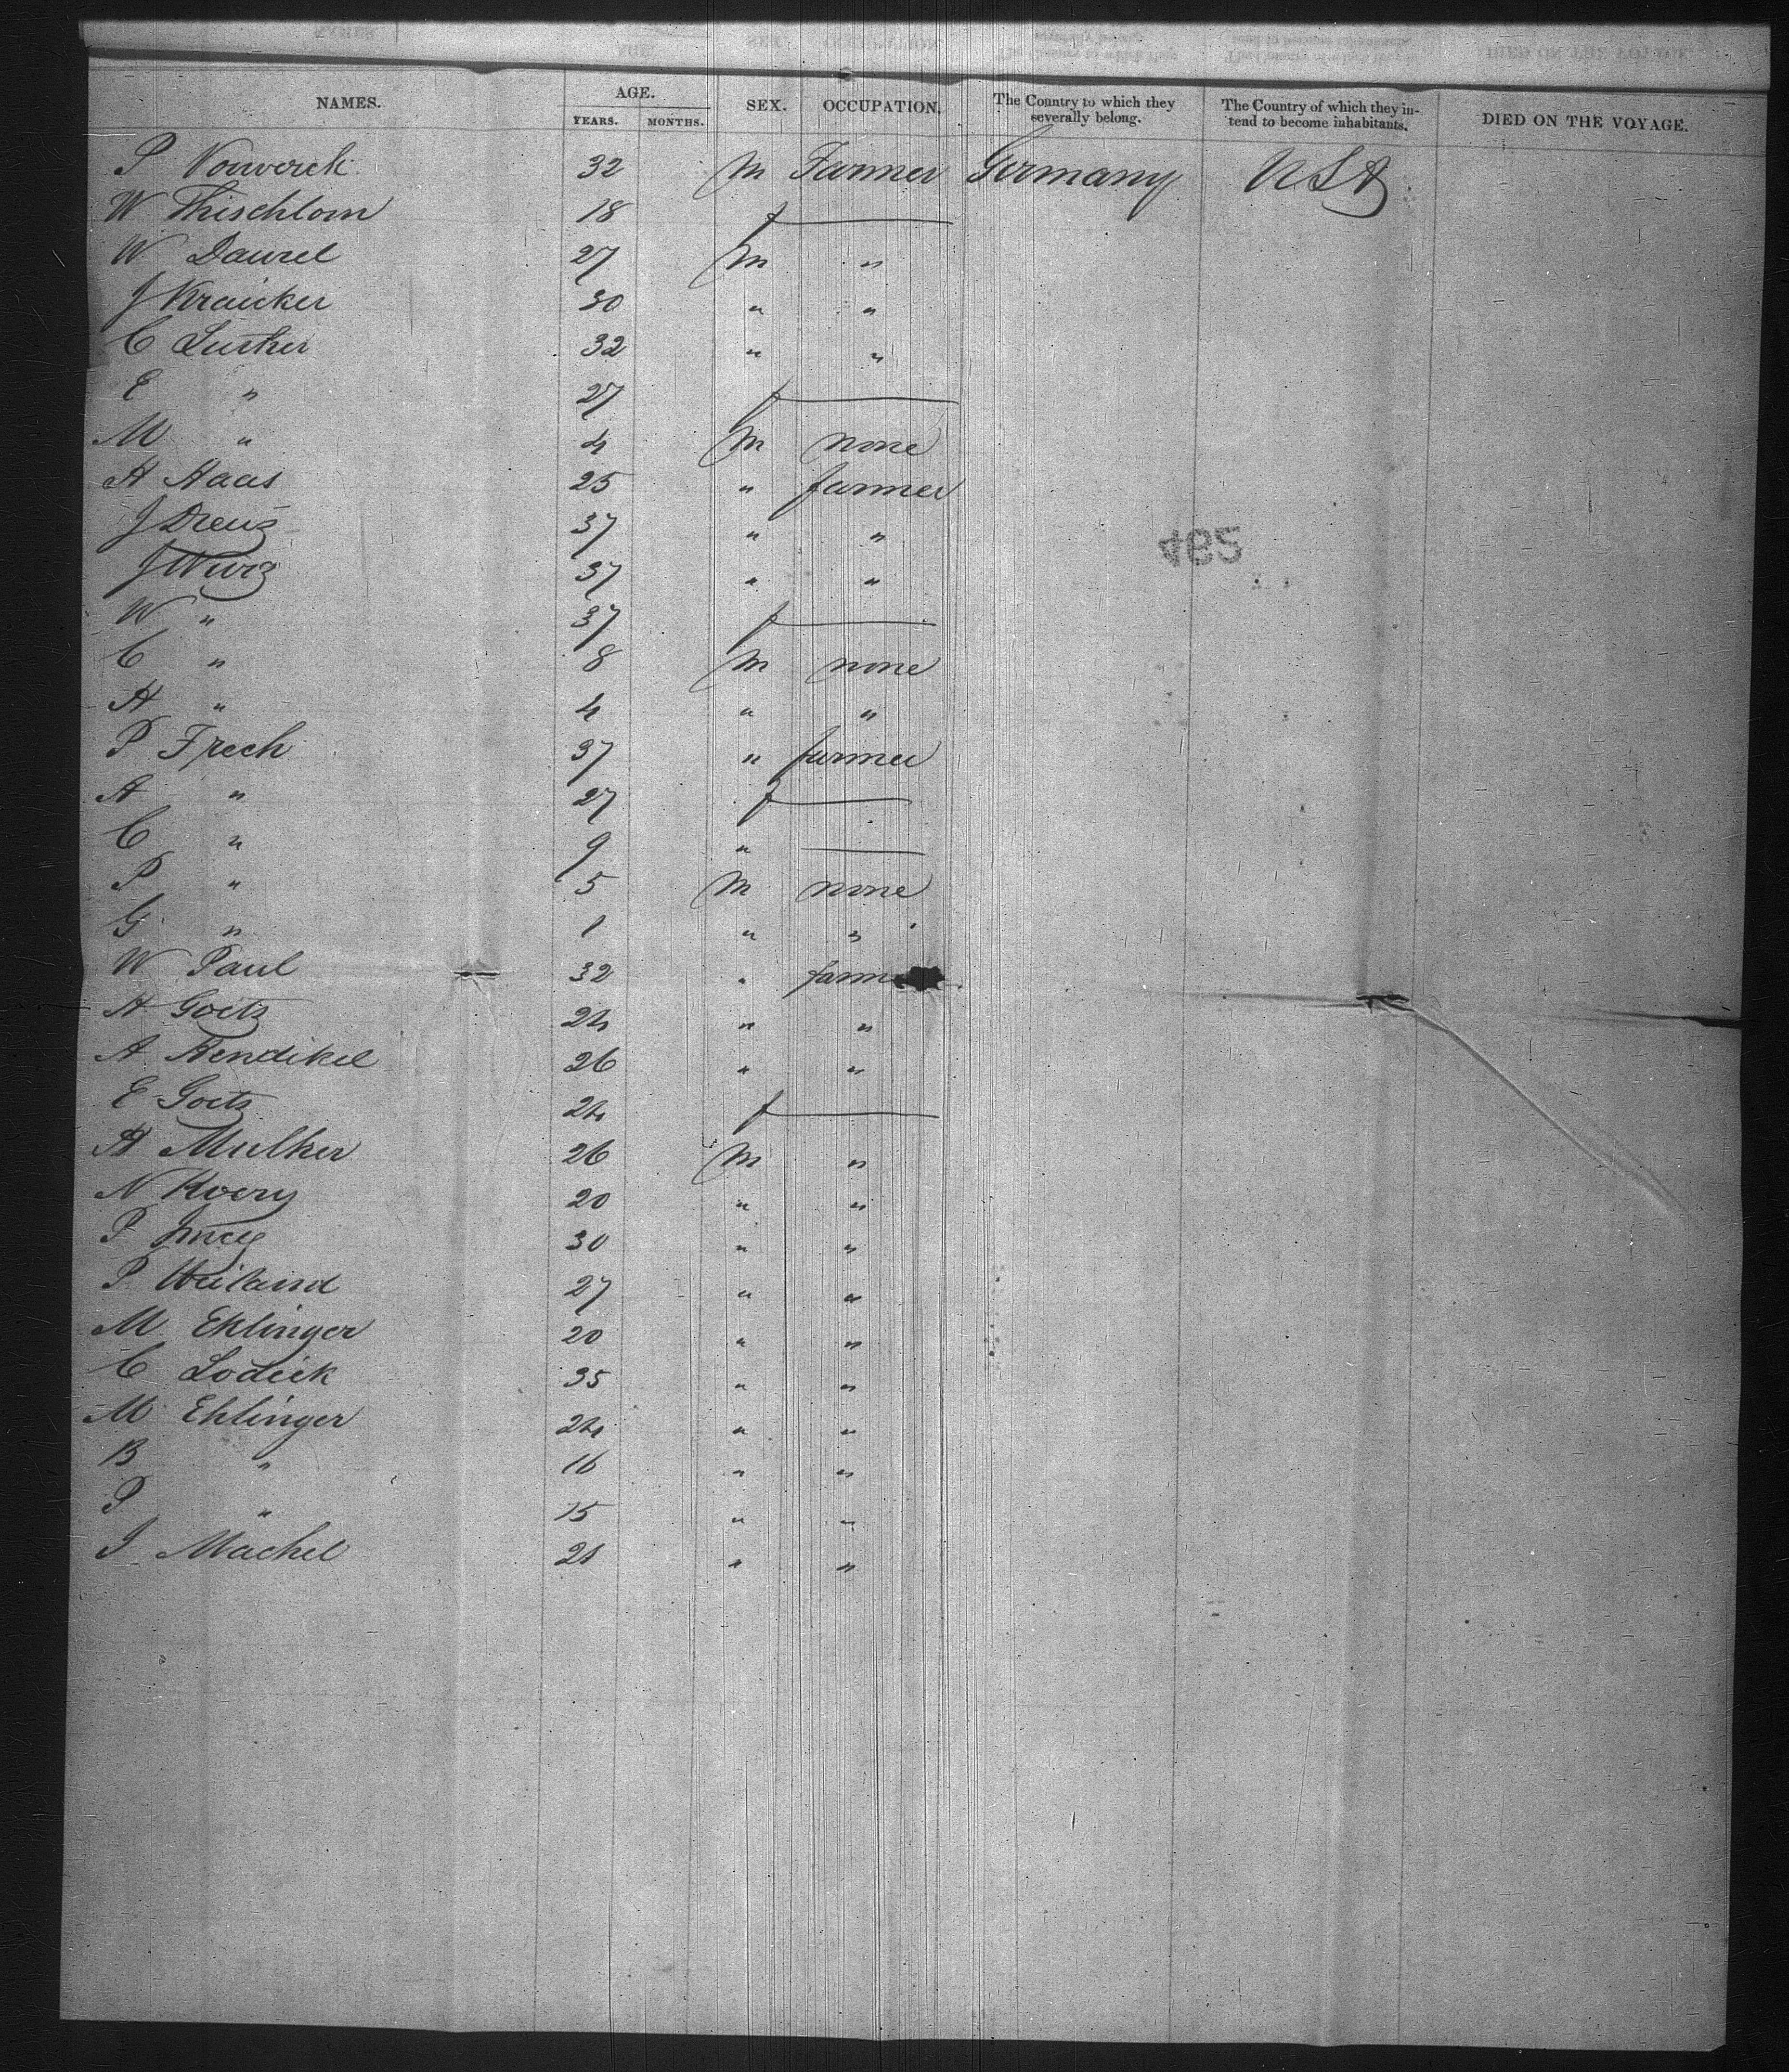 NAMES. AGE. YEARS. MONTHS. SEX. OCCUPATION. The Country to which they severally belong. The Country of which they intend to become inhabitants. DIED ON THE VOYAGE.
P Vorwerck 32 M Farmer Germany USA
W 18 f
W Daurel 27 M "
J Kraicker 30 " "
C Luther 32 " "
E " 27 f
M " 4 M none
H Haas 25 " farmer
J Dreuz 37 " "
J Wurz 37 " "
W " 37 f
C " 8 M none
H " 4 " "
P Frech 37 " farmer
A " 27 f
C " 9 "
P " 5 M none
G " 1 " "
W Paul 32 " farmer
H Goetz 24 " "
A Hendikel 26 " "
E Goetz 24 f
Mulker 26 M "
N 20 " "
P 30 " "
P Weiland 27 " "
M Ehlinger 20 " "
C Lodeik 35 " "
M Ehlinger 24 " "
B " 16 " "
P " 15 " "
J Machel 21 " "